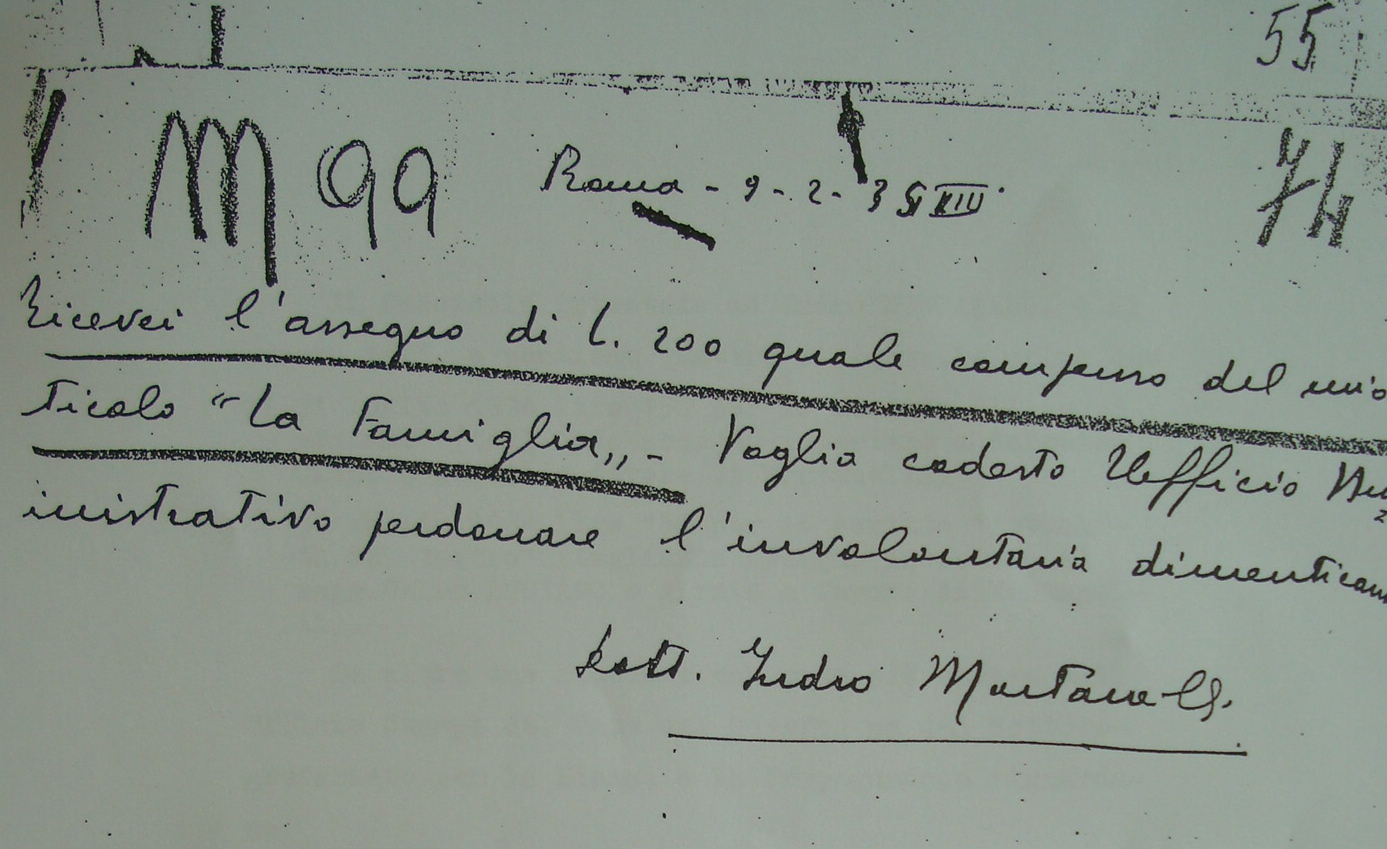 55
M 99 Roma - 9 - 2 - 35 XIII 74
Ricevei l'assegno di L. 200 quale compenso del mio
ticolo "La Famiglia„ - Voglia codesto Ufficio
inistrativo perdonare l'involontaria dimentican
Dott. Indro Montanelli